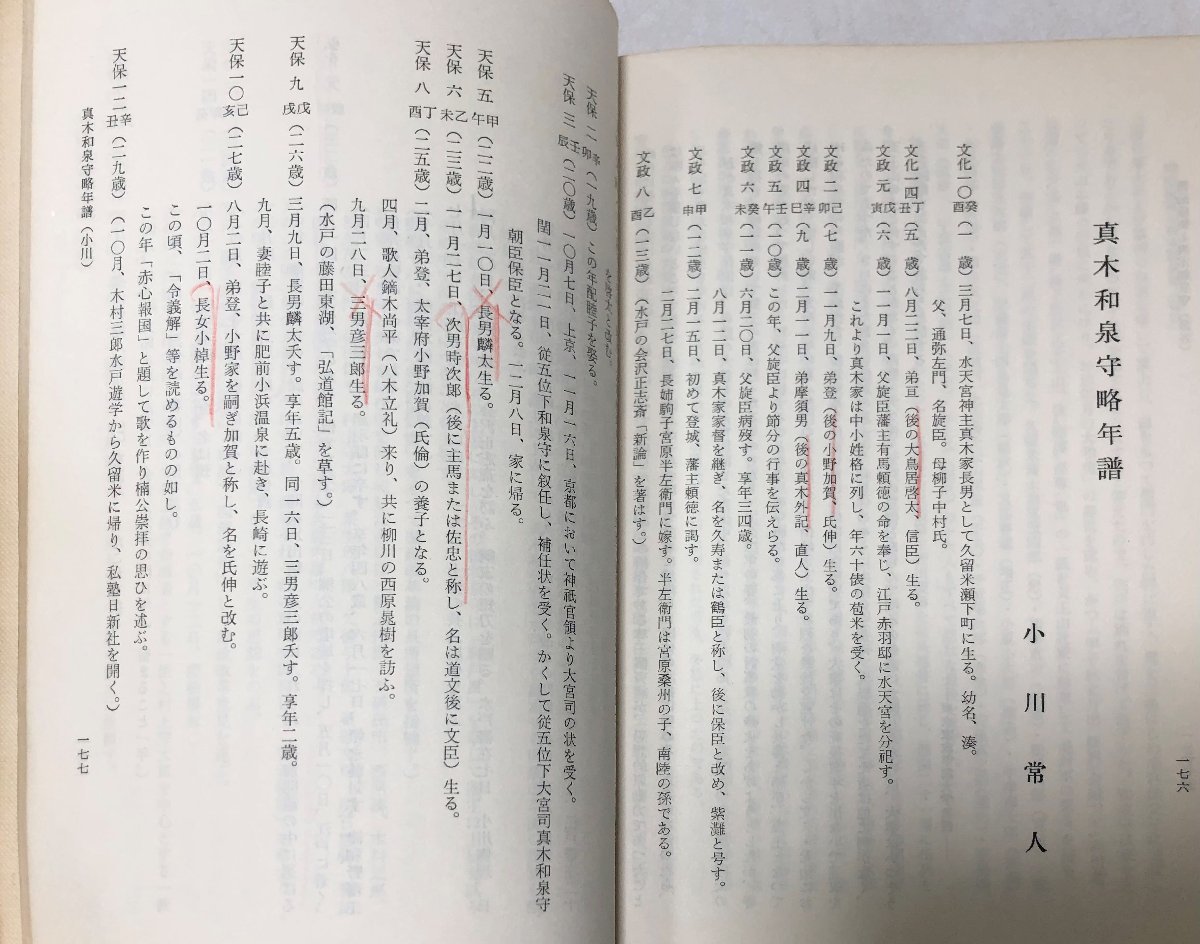 真木和泉守略年譜
小川常人
文化一〇癸酉(一歳)三月七日、水天宮神主真木家長男として久留米瀬下町に生る。幼名、湊。
父、通弥左門、名旋臣。母柳子中村氏。
文化一四丁丑(五歳)八月二二日、弟亘(後の大鳥居啓太、信臣)生る。
文政元戊寅(六歳)一一月一日、父旋臣藩主有馬頼徳の命を奉じ、江戸赤羽邸に水天宮を分祀す。
これより真木家は中小姓格に列し、年六十俵の苞米を受く。
文政二己卯(七歳)一一月九日、弟登(後の小野加賀、氏伸)生る。
文政四辛巳(九歳)二月一一日、弟摩須男(後の真木外記、直人)生る。
文政五壬午(一〇歳)この年、父旋臣より節分の行事を伝えらる。
文政六癸未(一一歳)六月二〇日、父旋臣病歿す。享年三四歳。
八月一二日、真木家家督を継ぎ、名を久寿または鶴臣と称し、後に保臣と改め、紫灘と号す。
文政七甲申(一二歳)二月一五日、初めて登城、藩主頼徳に謁す。
二月二七日、長姉駒子宮原半左衛門に嫁す。半左衛門は宮原桑州の子、南陸の孫である。
文政八乙酉(一三歳)(水戸の会沢正志斎「新論」を著はす。)
一七六
天保二辛卯(一九歳)この年配睦子を娶る。
天保三壬辰(二〇歳)一〇月七日、上京、一一月一六日、京都において神祇官領より大宮司の状を受く。
閏一一月二一日、従五位下和泉守に叙任し、補任状を受く。かくして従五位下大宮司真木和泉守
朝臣保臣となる。一二月八日、家に帰る。
天保五甲午(二二歳)一月一〇日、長男麟太生る。
天保六乙未(二三歳)一一月二七日、次男時次郎(後に主馬または佐忠と称し、名は道文後に文臣)生る。
天保八丁酉(二五歳)二月、弟登、太宰府小野加賀(氏倫)の養子となる。
四月、歌人鏑木尚平(八木立礼)来り、共に柳川の西原晁樹を訪ふ。
九月二八日、三男彦三郎生る。
(水戸の藤田東湖、「弘道館記」を草す。)
天保九戊戌(二六歳)三月九日、長男麟太夭す。享年五歳。同一六日、三男彦三郎夭す。享年二歳。
九月、妻睦子と共に肥前小浜温泉に赴き、長崎に遊ぶ。
天保一〇己亥(二七歳)八月二日、弟登、小野家を嗣ぎ加賀と称し、名を氏伸と改む。
一〇月二日、長女小棹生る。
この頃、「令義解」等を読めるものの如し。
この年「赤心報国」と題して歌を作り楠公崇拝の思ひを述ぶ。
天保一二辛丑(二九歳)(一〇月、木村三郎水戸遊学から久留米に帰り、私塾日新社を開く。)
真木和泉守略年譜(小川)
一七七